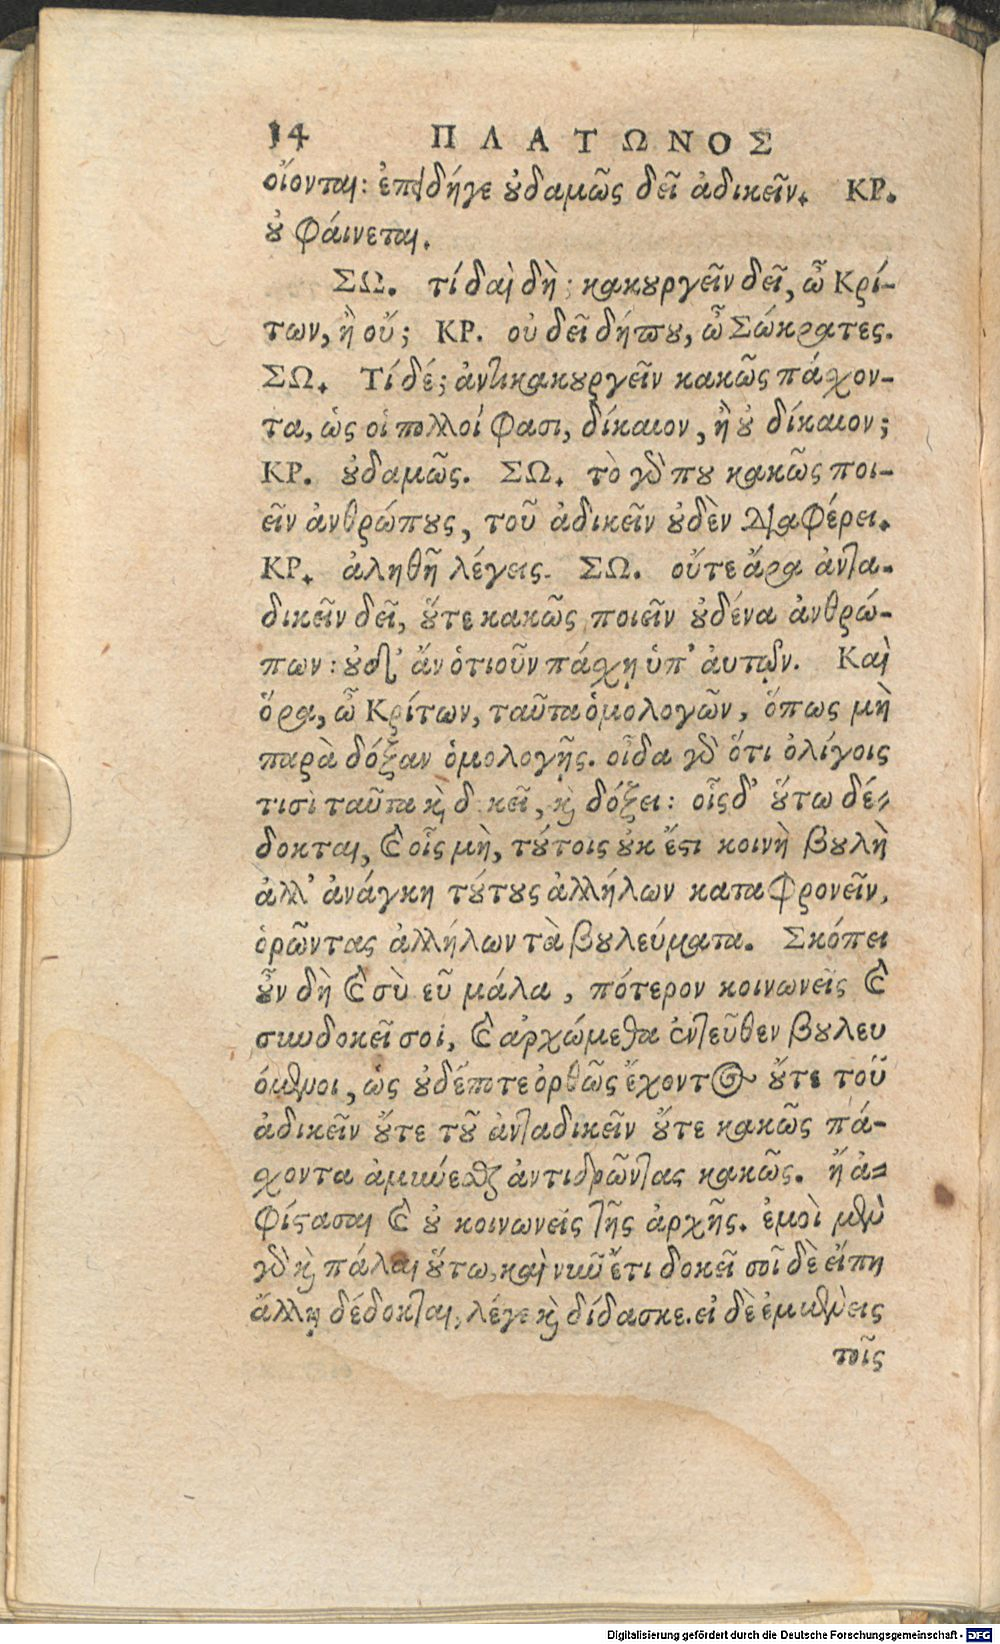 14 ΠΛΑΤΩΝΟΣ
οἴονται: ἐπειδήγε ȣ̓δαμῶς δεῖ ἀδικεῖν. ΚΡ.
ȣ̓ φάινεται.
ΣΩ. τί δαὶ δὴ; κακȣργεῖν δεῖ, ὦ Κρί-
των, ἢ οὔ; ΚΡ. οὐ δεῖ δήπȣ, ὦ Σώκρατες.
ΣΩ. Τί δέ; ἀντικακȣργεῖν κακῶς πάχον-
τα, ὡς οἱ πολλοί φασι, δίκαιον, ἢ ȣ̓ δίκαιον;
ΚΡ. ȣ̓δαμῶς. ΣΩ. τὸ γὰρ πȣ κακῶς ποι-
εῖν ἀνθρώπȣς, τοῦ ἀδικεῖν ȣ̓δὲν διαφέρει.
ΚΡ. ἀληθῆ λέγεις. ΣΩ. οὔτε ἄρα ἀντα-
δικεῖν δεῖ, ȣ̓́τε κακῶς ποιεῖν ȣ̓δένα ἀνθρώ-
πων: ȣ̓δ' ἄν ὁτιοῦν πάχῃ ὑπ' ἀυτῶν. Καὶ
ὅρα, ὦ Κρίτων, ταῦτα ὁμολογῶν, ὅπως μὴ
παρὰ δόξαν ὁμολογῇς. οἶδα γὰρ ὅτι ὀλίγοις
τισὶ ταῦτα καὶ δ κεῖ, καὶ δόξει: οἷς δ' ȣ̔́τω δέ-
δοκται, καὶ οἷς μὴ, τȣ́τοις ȣ̓κ ἔστι κοινὴ βȣλὴ
ἀλλ' ἀνάγκη τȣ́τȣς ἀλλήλων καταφρονεῖν,
ὁρῶντας ἀλλήλων τὰ βȣλεύματα. Σκόπει
ȣ̓͂ν δὴ καὶ σὺ εὖ μάλα, πότερον κοινωνεῖς καὶ
συνδοκεῖ σοι, καὶ ἀρχώμεθα ἐντεῦθεν βȣλευ
όμενοι, ὡς ȣ̓δέποτε ὀρθῶς ἔχοντος ȣ̓́τε τοῦ
ἀδικεῖν ȣ̓́τε τȣ͂ ἀνταδικεῖν ȣ̓́τε κακῶς πά-
χοντα ἀμύνεσθαι ἀντιδρῶντας κακῶς. ἢ ἀ-
φίστασαι καὶ ȣ̓ κοινωνεῖς τῆς ἀρχῆς. ἐμοὶ μὲν
γὰρ καὶ πάλαι ȣ̔́τω, καὶ νῦν ἔτι δοκεῖ σοὶ δὲ εἴπη
ἄλλῃ δέδοκται, λέγε καὶ δίδασκε. εἰ δὲ ἐμμένεις
τοῖς
Digitalisierung gefördert durch die Deutsche Forschungsgemeinschaft - DFG